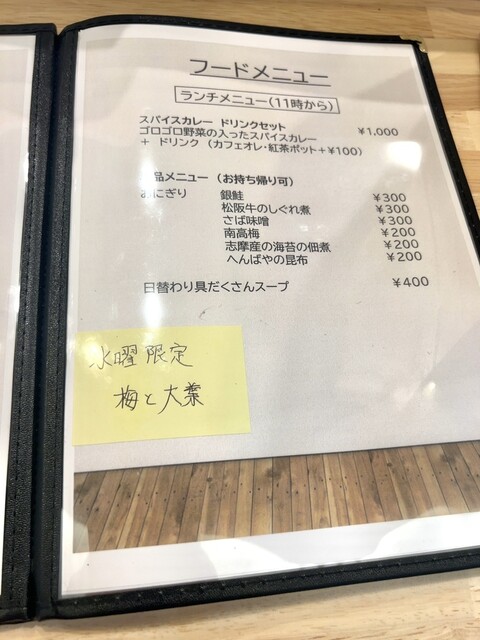 フードメニュー
ランチメニュー(11時から)
スパイスカレー ドリンクセット ¥1,000
ゴロゴロ野菜の入ったスパイスカレー
+ ドリンク (カフェオレ・紅茶ポット+¥100)
品メニュー (お持ち帰り可)
おにぎり 銀鮭 ¥300
松阪牛のしぐれ煮 ¥300
さば味噌 ¥300
南高梅 ¥200
志摩産の海苔の佃煮 ¥200
へんばやの昆布 ¥200
日替わり具だくさんスープ ¥400
水曜限定
梅と大葉